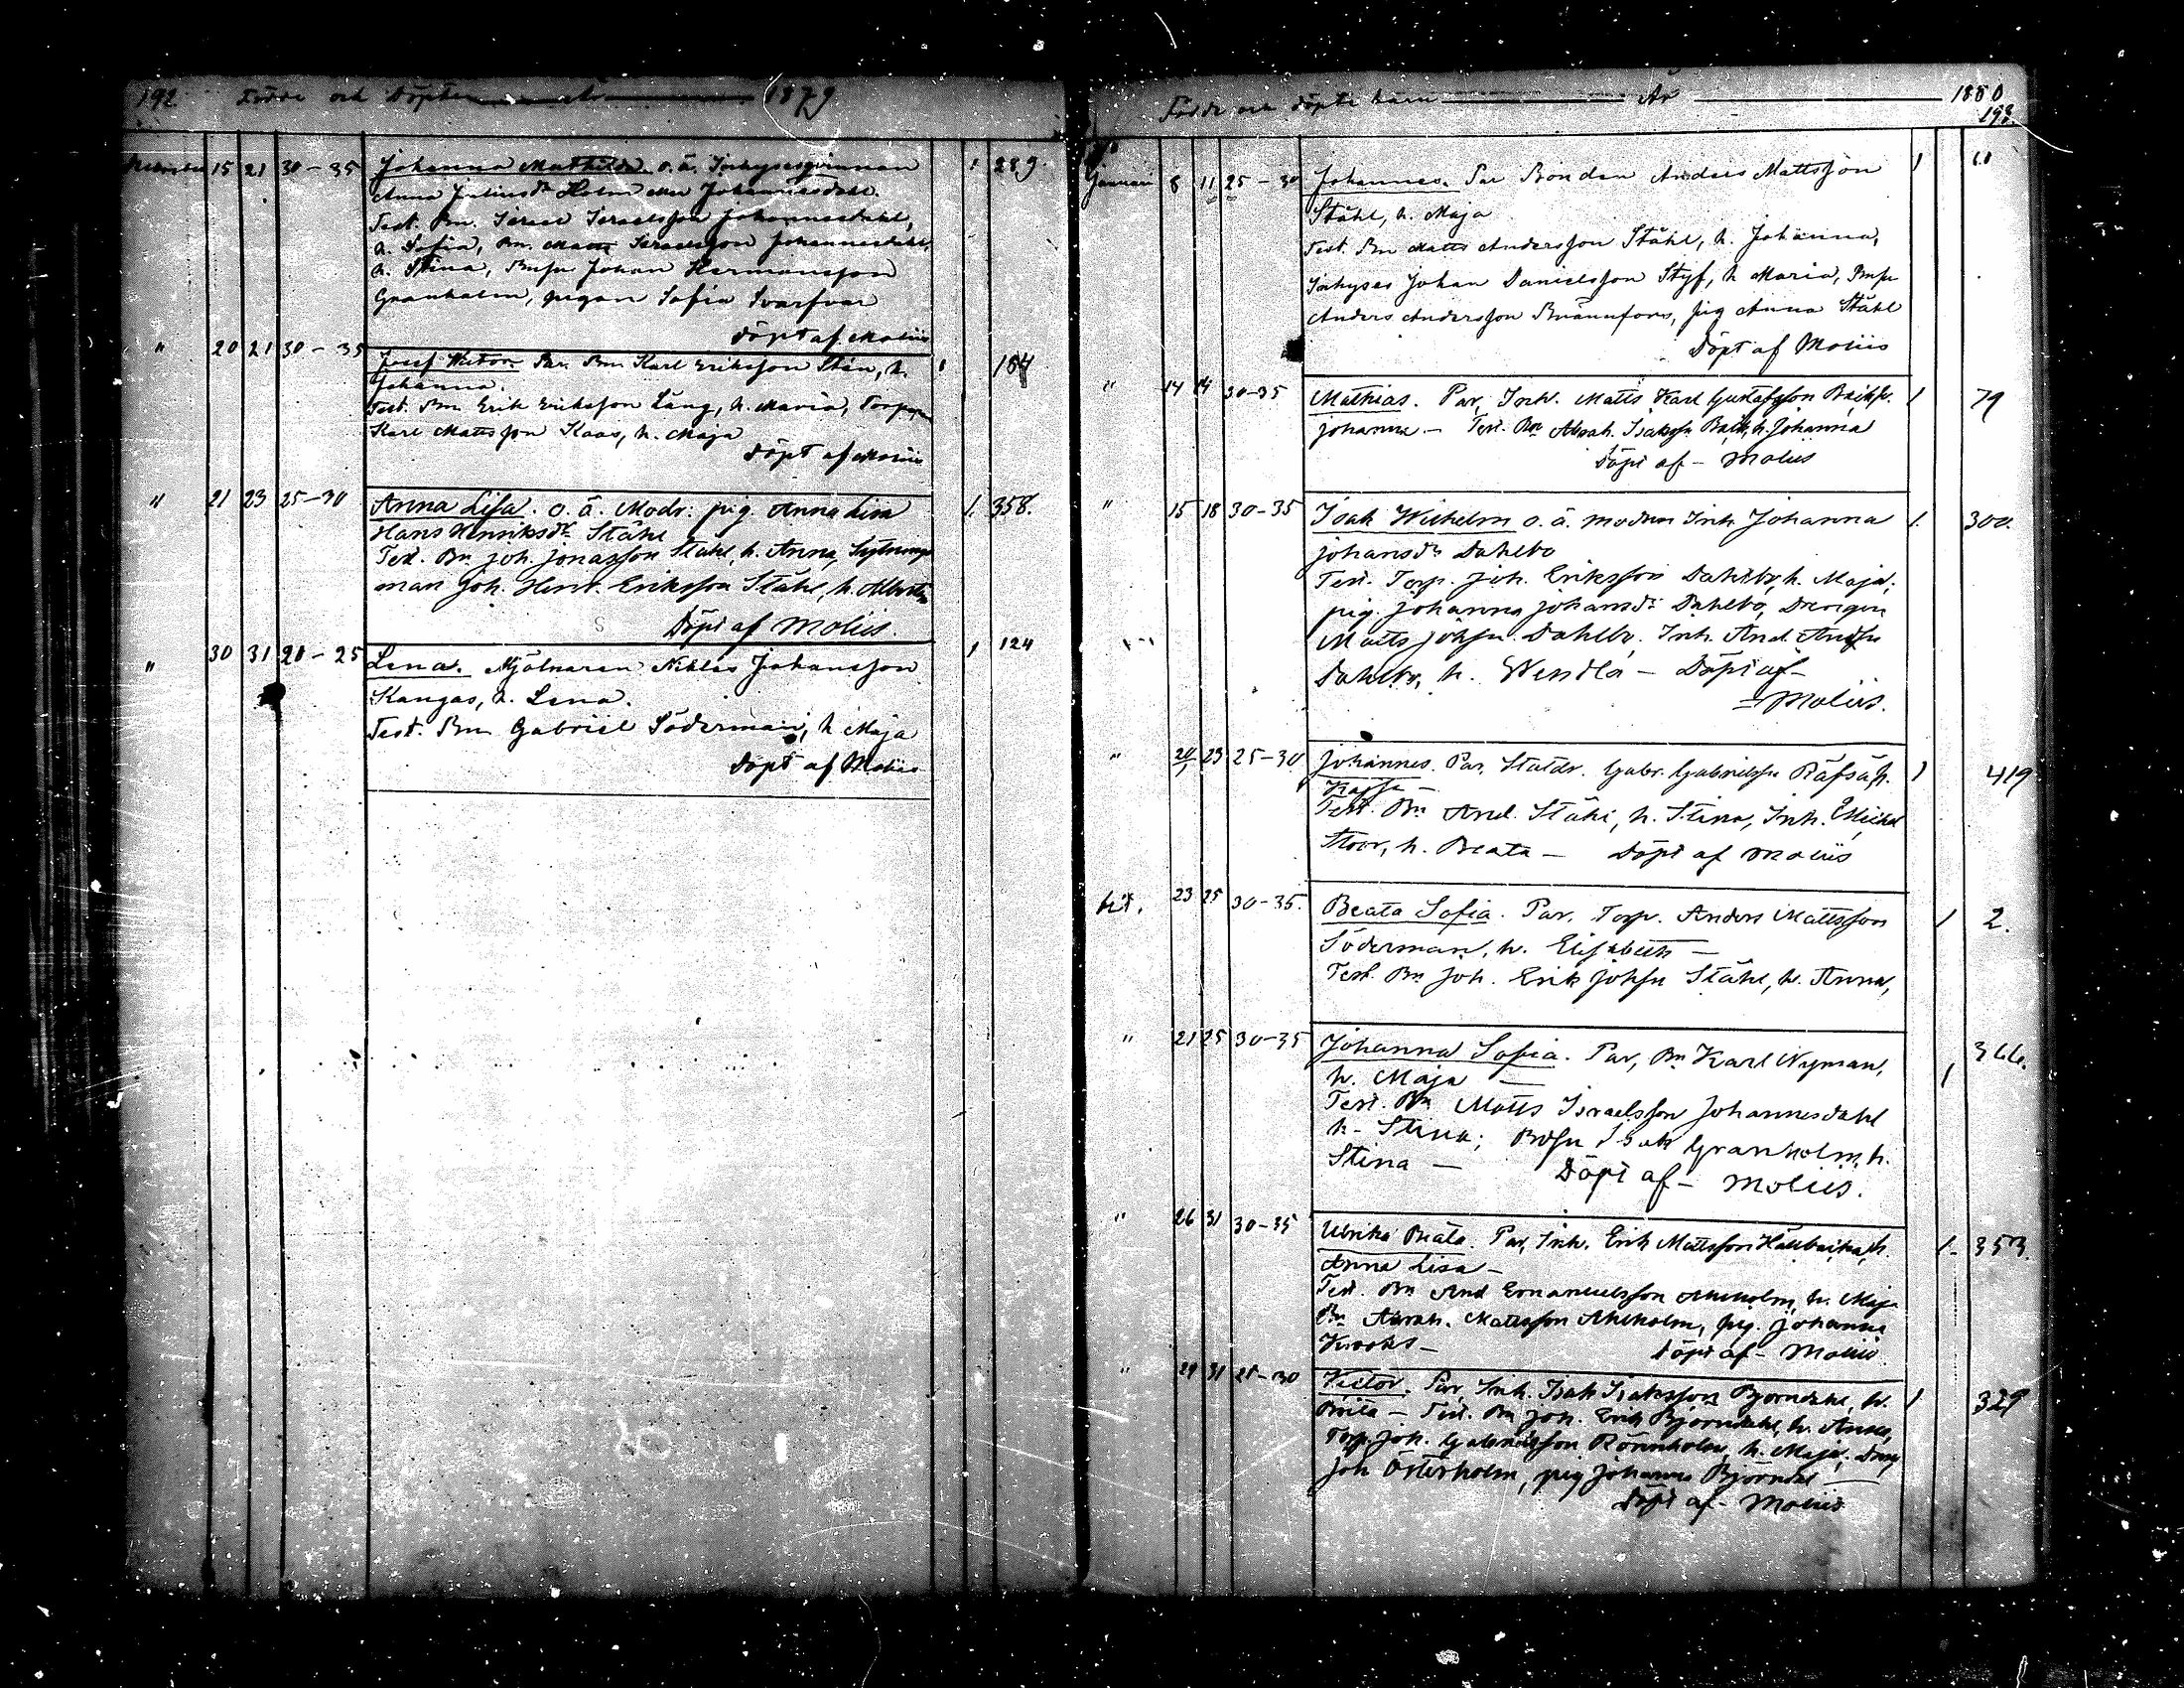 192 Födde och Döpte År 1879
15 21 30-35 Johanna Mathilda. o. ä. Inhysesqvinnan 1 289.
Anna Juliusdr Holm Johannesdahl.
Test. Bn. Israel Israelsson Johannesdahl,
h. Sofia, Bn. Matts Israelsson Johannesdahl,
h. Stina, Bnsn Johan Hermansson
Granholm, pigan Sofia Svarfvar
Döpt af Moliis
" 20 21 30-35 Josef Victor. Par. Bn. Karl Eriksson Stén, h. 1 184
Johanna.
Test. Bn. Erik Eriksson Lång, h. Maria, Torp
Karl Mattsson Kaas, h. Maja
Döpt af Moliis
" 21 23 25-30 Anna Lisa. o. ä. Modr: pig. Anna Lisa 1. 358.
Hans Henriksdr Ståhl
Test. Bn. Joh. Jonasson Ståhl, h. Anna, Sytnings
man Joh. Henr. Eriksson Ståhl, h. Albertina
Döpt af Moliis.
" 30 31 20-25 Lena. Mjölnaren Niklas Johansson 1 124
Kangas, h. Lena.
Test. Bn Gabriel Söderman, h Maja
Döpt af Moliis
Födde och döpte barn År 1880
193.
Januari 8 11 25-30 Johannes. Par Bonden Anders Mattsson 1
Ståhl, h. Maja
Test. Bn Matts Andersson Ståhl, h. Johanna,
Inhyses Johan Danielsson Styf, h Maria, Bnsn
Anders Andersson Brännfors, pig Anna Ståhl
Döpt af Moliis
" 14 14 30-35 Mathias. Par, Inh. Matts Karl Gustafsson 1 79
Johanna - Test. Bn Abrah. Isakss. Back, h. Johanna
Döpt af - Moliis
" 15 18 30-35 Isak Wilhelm o. ä. modren Inh. Johanna 1. 300.
Johansdr Dahlbo
Test. Torp. Joh. Eriksson Dahlbo, h. Maja,
pig. Johanna Johansdr Dahlbo, Drengen
Matts Johsn. Dahlbo, Inh. And. Andsn
Dahlbo, h. Wendla - Döpt af -
- Moliis.
" 20 23 25-30 Johannes. Par, Statdr. Gabr. Gabrielsn Räfså, h. 1 419
Kajsa -
Test. Bn And. Ståhl, h. Stina, Inh. Michel
Stoor, h. Beata - Döpt af Moliis
23 25 30-35. Beata Sofia. Par. Torp. Anders Mattsson 1 2.
Söderman, h. Elisabeth -
Test. Bn Joh. Erik Johsn Ståhl, h. Anna,
" 21 25 30-35 Johanna Sofia. Par, Bn Karl Nyman, 1 366.
h. Maja -
Test. Bn Matts Israelsson Johannesdahl
h. Stina; Bdsn Isak Granholm, h.
Stina - Döpt af - Moliis.
" 26 31 30-35 Ulrika Beata. Par, Inh. Erik Mattsson Hällbacka, h. 1. 353.
Anna Lisa -
Test. Bn And Emanuelsson Ahlholm, h. Maja
Bn Abrah. Mattsson Ahlholm, pig. Johanna
Krooks - Döpt af - Moliis.
" 29 31 25-30 Victor. Par, Inh. Isak Isaksson Björndahl, h. 1 329
Brita - Test. Bn Joh. Erik Björndahl, h. Anna,
Torp. Joh. Gabrielsson Rönnholm, h. Maja, Dreng
Joh Österholm, pig Johanna Björndal
Döpt af - Moliis